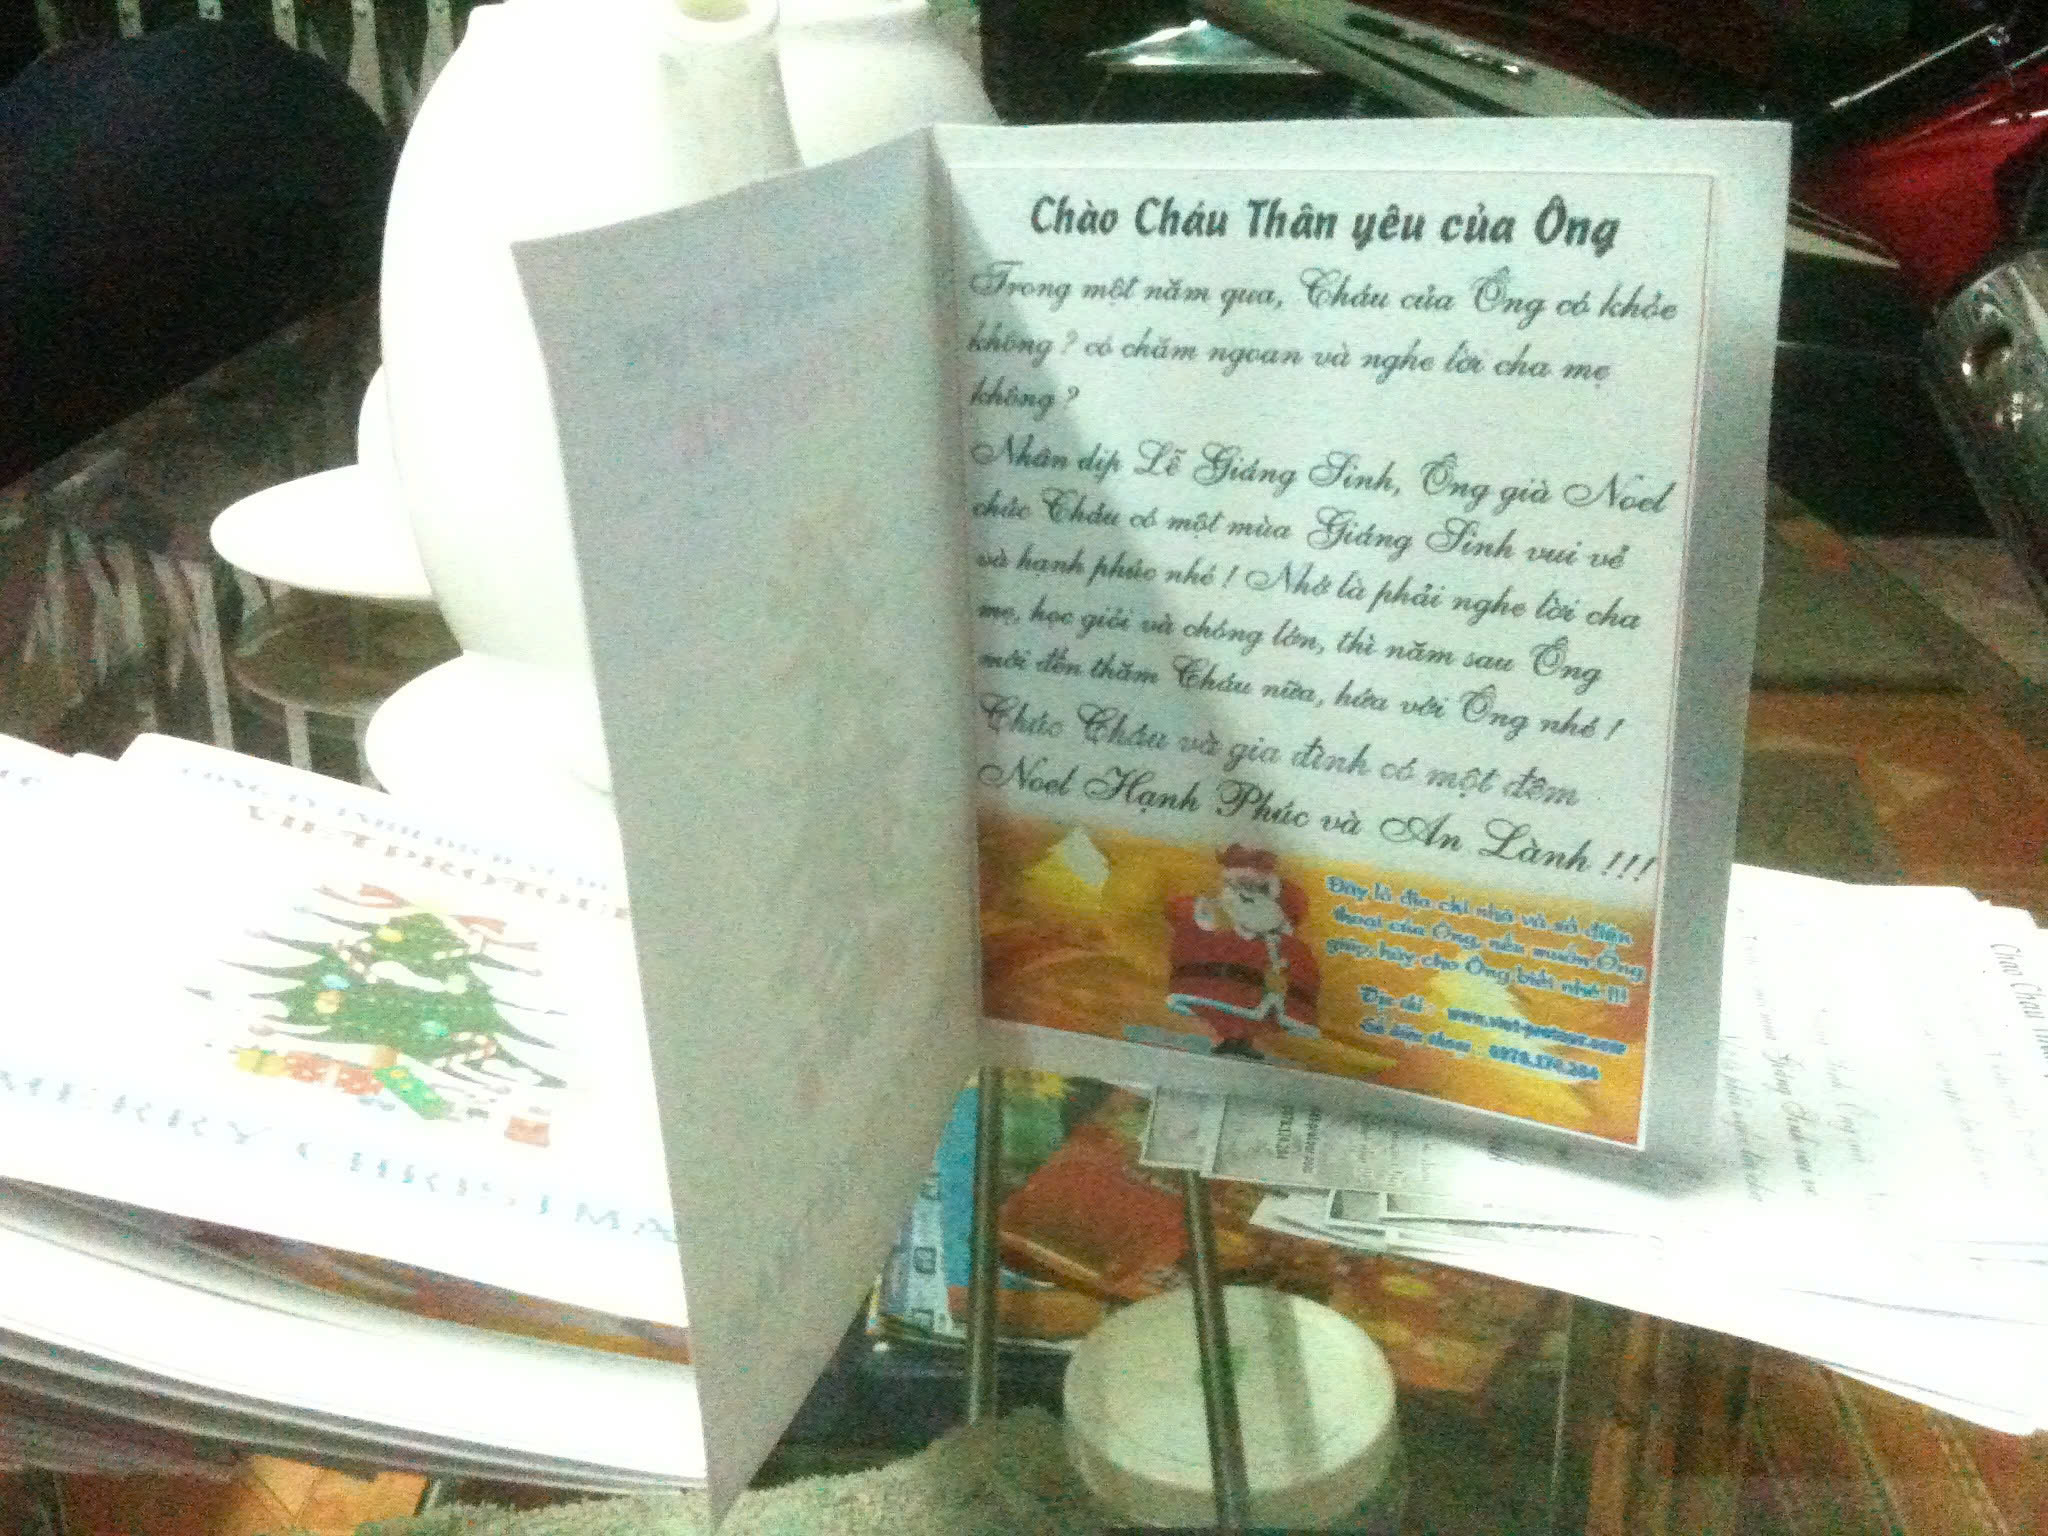 Chào Cháu Thân yêu của Ông
Trong một năm qua, Cháu của Ông có khỏe
không ? có chăm ngoan và nghe lời cha mẹ
không ?
Nhân dịp Lễ Giáng Sinh, Ông già Noel
chúc Cháu có một mùa Giáng Sinh vui vẻ
và hạnh phúc nhé ! Nhớ là phải nghe lời cha
mẹ, học giỏi và chóng lớn, thì năm sau Ông
mới đến thăm Cháu nữa, hứa với Ông nhé !
Chúc Cháu và gia đình có một đêm
Noel Hạnh Phúc và An Lành !!!
Đây là địa chỉ nhà và số điện
thoại của Ông, nếu muốn Ông
giúp, hãy cho Ông biết nhé !!!
Địa chỉ : www.viet-protour.com
Số điện thoại : 0978.174.284
VIETPROTOUR
MERRY CHRISTMA